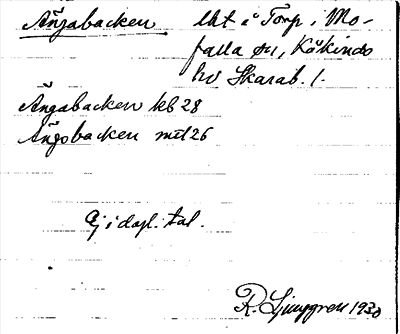 Ängabacken lht i Torp i Mo-
falla sn, Kåkinds
hd Skarab. l.
Ängabacken kb 28
Ängsbacken mtl 26
Ej i dagl. tal.
R. Ljunggren 1930